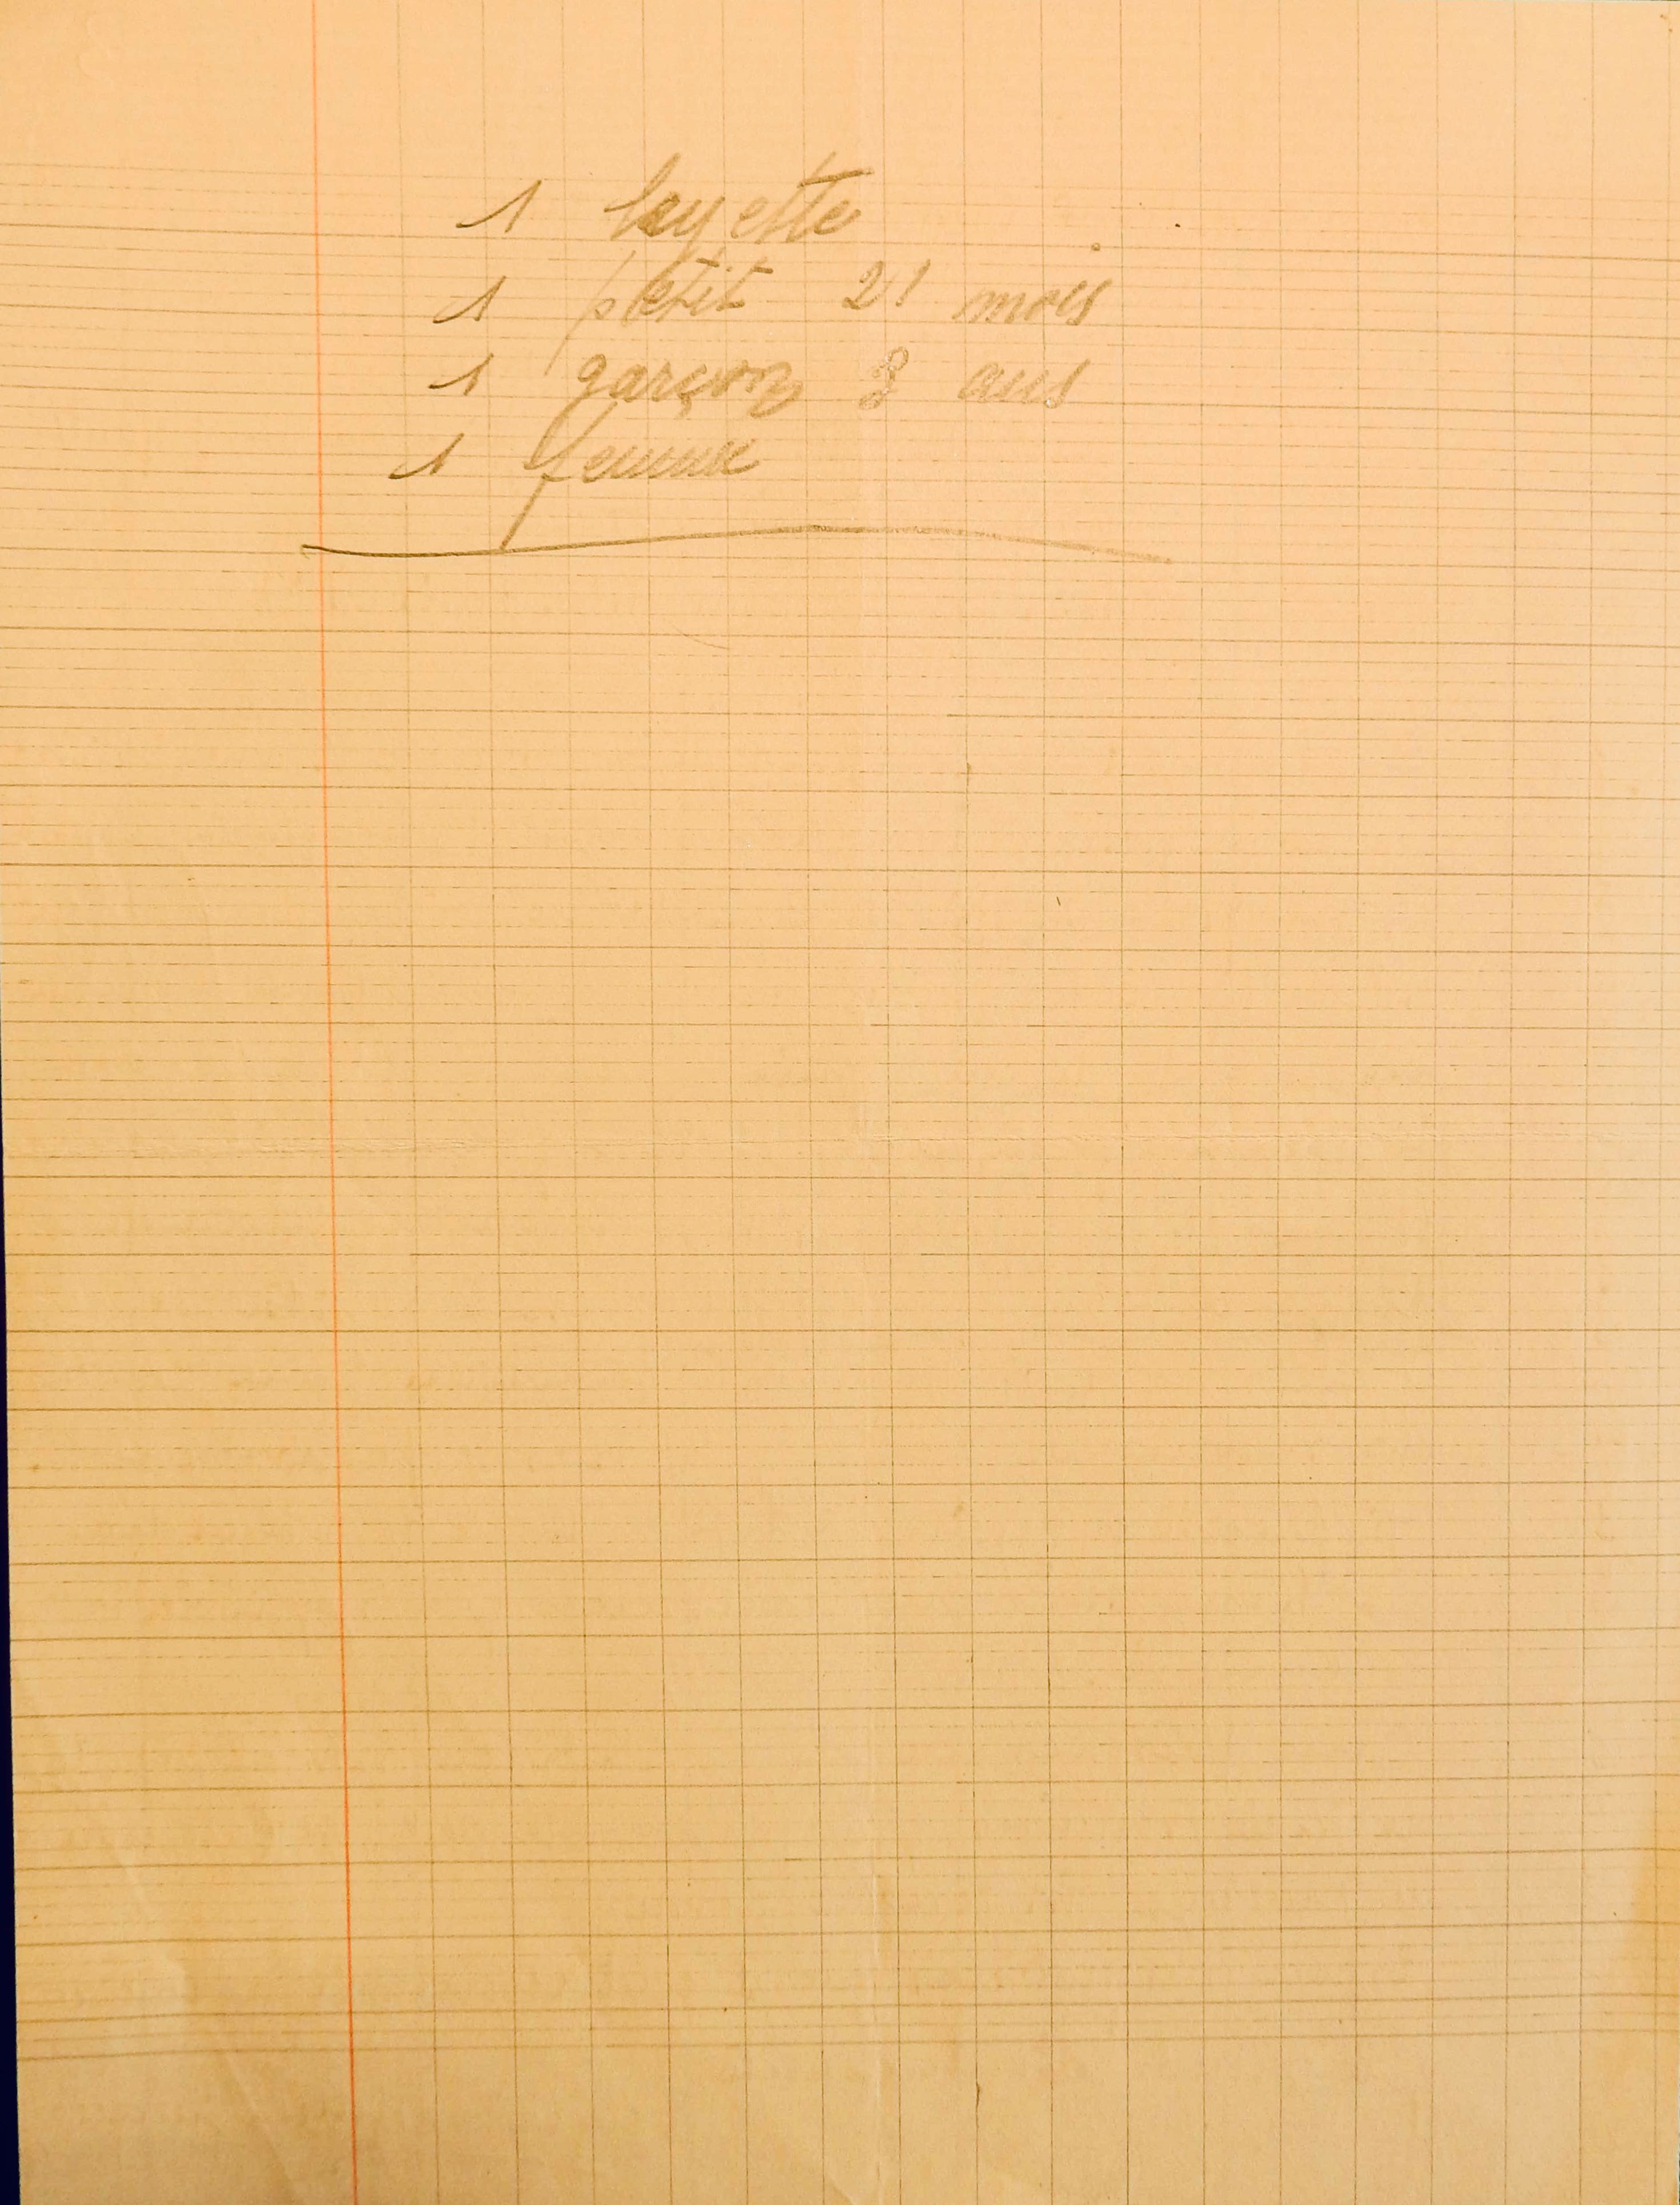 1 layette
1 petit 21 mois
1 garçon 3 ans
1 femme